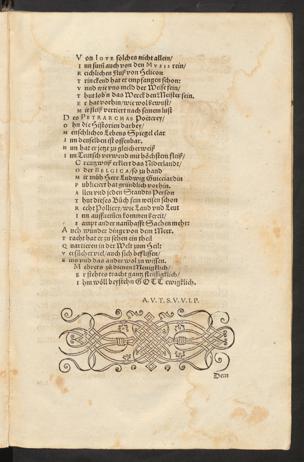 Von IOVE solches nicht allein/
Inn sum̃ auch von den MVSIS rein/
Reichlichen fluß von Helicon
Trinckend hat er empfangen schon:
Vnnd wie vns meld der Weise rein/
Thut lob'n das Werck den Meister sein.
Er hat vorhin/wie wol bewust/
Mit fleiß vertiert nach seinem lust
Des PETRARCHAS Poeterey/
Ohn die Historien darbey/
Menschliches Lebens Spiegel clar
Im denselben ist offenbar.
Nun hat er jetz zu gleicherweiß
Im Teutsch verwend mit höchstem fleiß/
Creutzweiß erklert das Niderland/
Oder BELGICA/so zu hand
Mit müh Herr Ludwig Guicciardin
Publiciert hat gründlich vorhin.
Allen und jeden Standts Person
Thut dieses Buch fein weisen schon
Recht Pollicey/wie Land vnd Leut
Inn auffreissen kommen seit/
Sampt ander namhafft Sachen mehr:
Auch wunder dinge von dem Meer.
Tracht hat er zu sehen ein theil
Quartieren in der Welt zum Heil:
Versucher viel/auch sich beflissen/
Eins vnd das ander wol zu wissen.
Mehrers zu dienen Menigklich/
Er stehts tracht gantz fleissigklich/
Ihm wöll beystehn GOTT ewigklich.
A. V. T. S. V. V. I. P.
Dem